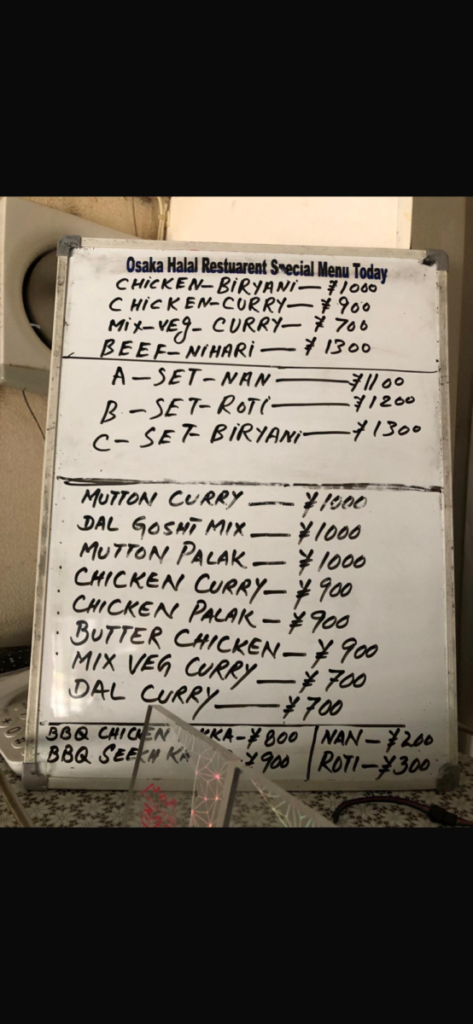 Osaka Halal Restuarent Special Menu Today
CHICKEN-BIRYANI — ¥1000
CHICKEN-CURRY — ¥900
Mix-VEg- CURRY — ¥700
BEEF-NIHARI — ¥1300
A-SET-NAN — ¥1100
B-SET-ROTI — ¥1200
C-SET BIRYANi — ¥1300
MUTTON CURRY — ¥1000
DAL GOSHT MIX — ¥1000
MUTTON PALAK — ¥1000
CHICKEN CURRY — ¥900
CHICKEN PALAK — ¥900
BUTTER CHICKEN — ¥900
MIX VEG CURRY — ¥700
DAL CURRY — ¥700
BBQ CHICKEN KKA-¥800 NAN-¥200
BBQ SEEKH KA ¥900 ROTI-¥300